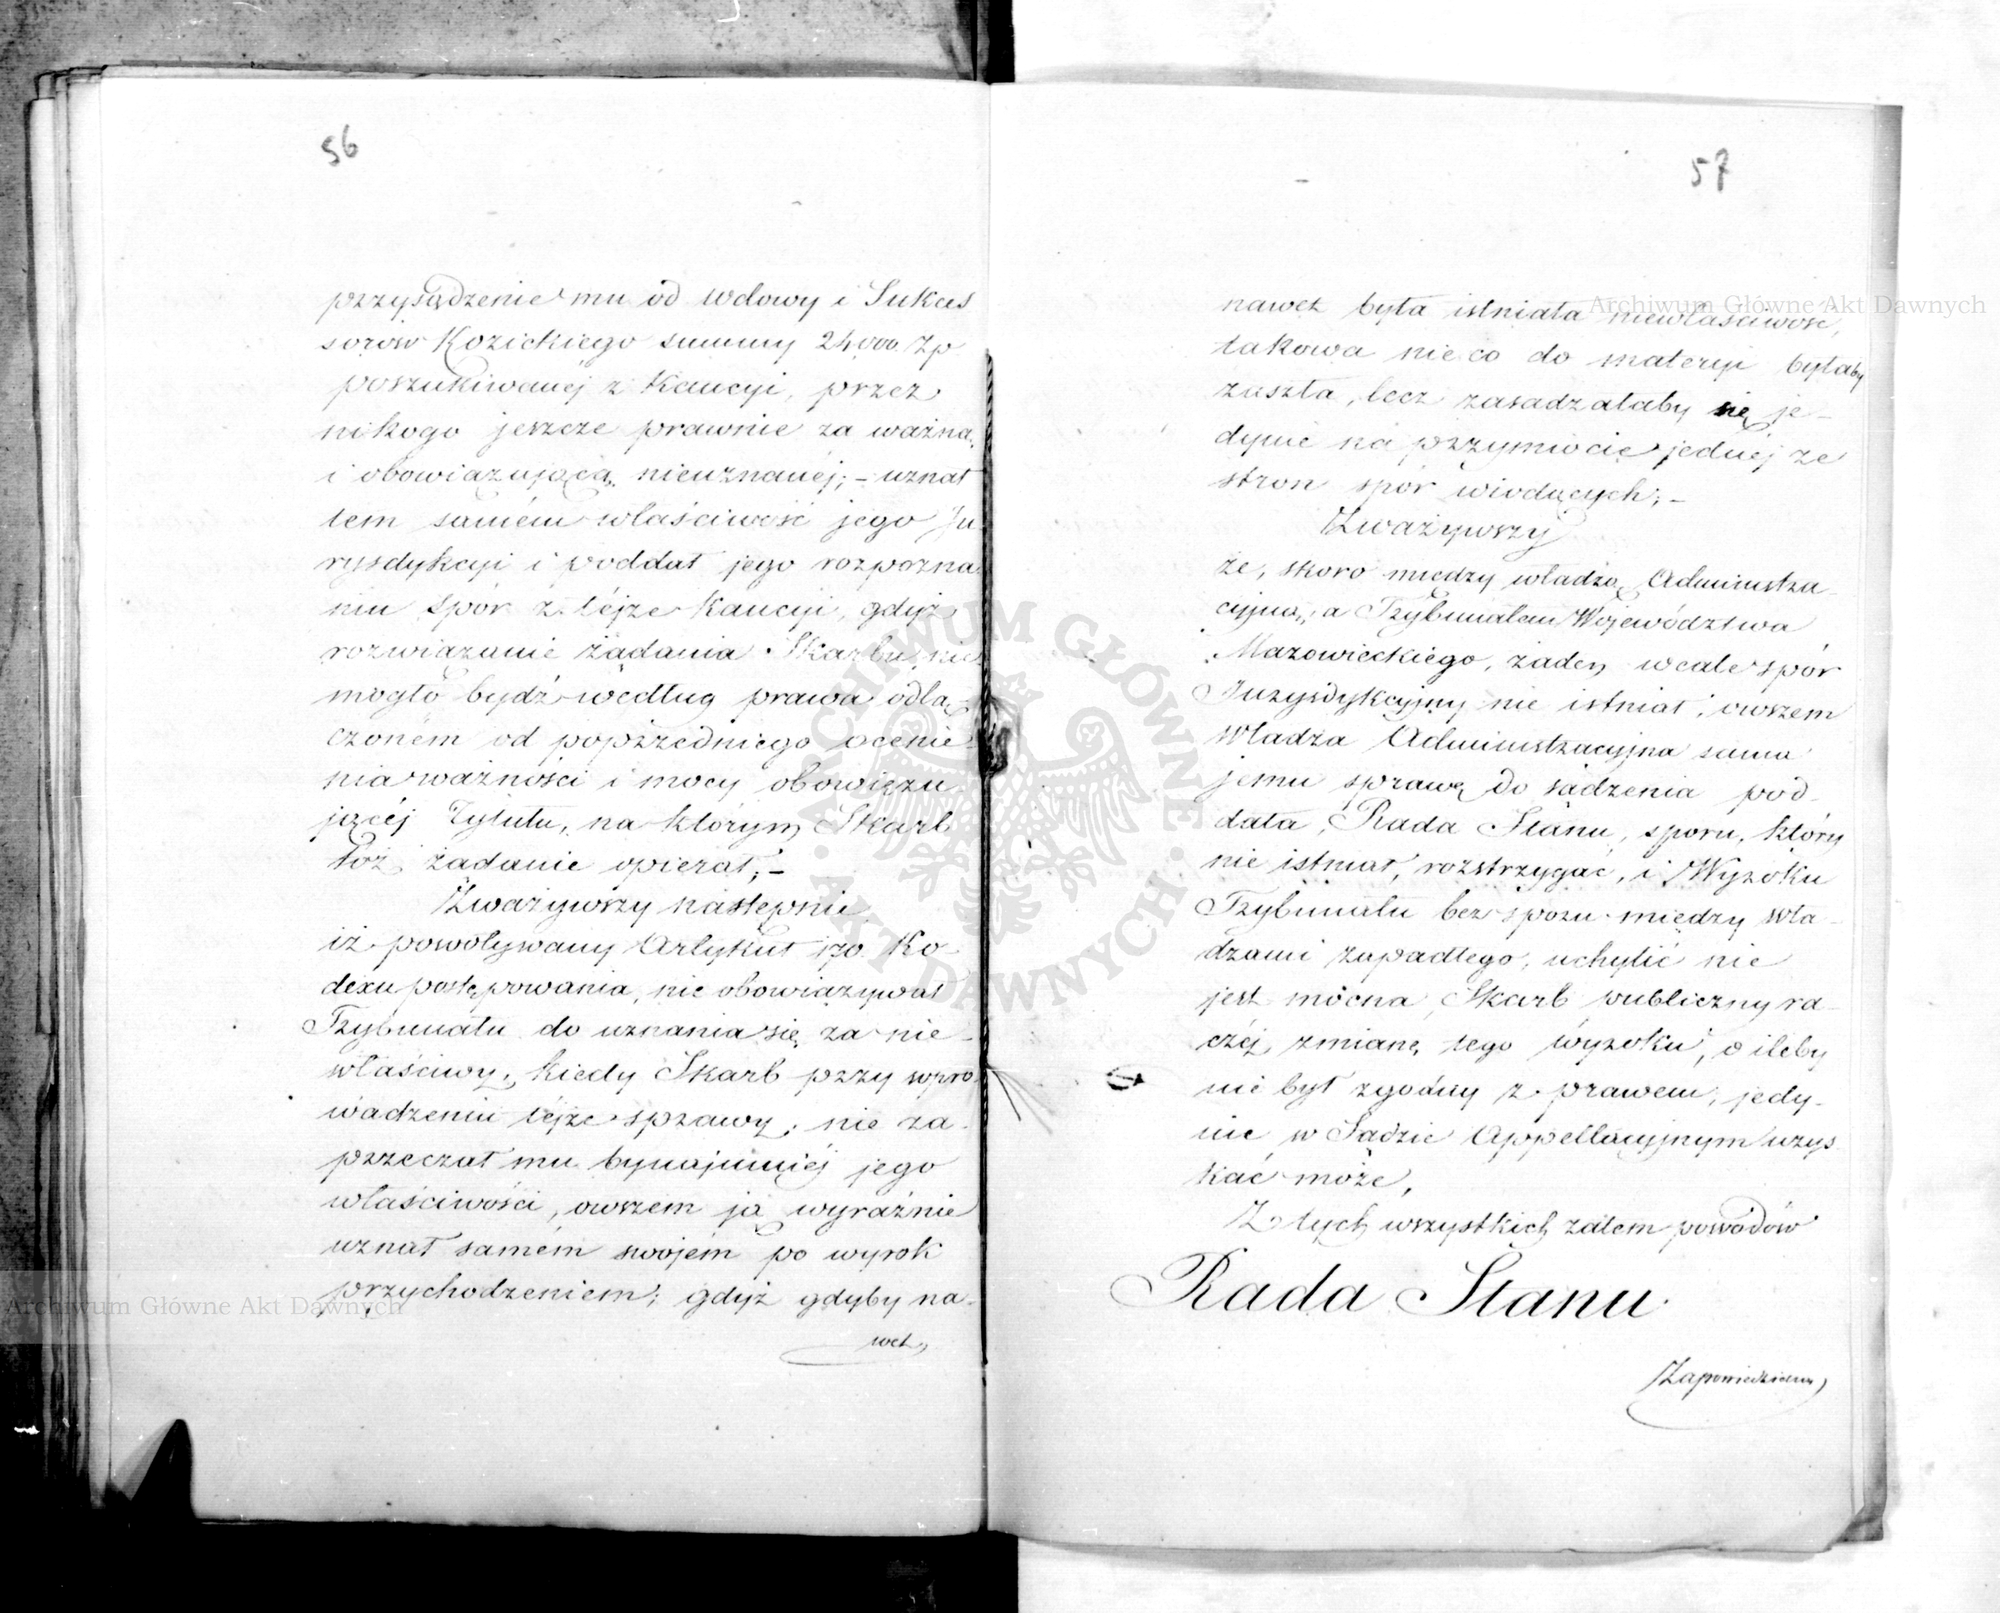 56
przysądzenie mu od wdowy i Sukces
sorów Kozickiego summy 24000 Zp
poszukiwanej z Kaucyi, przez
nikogo jeszcze prawnie za ważną
i obowiązującą nieuznanéj; – uznał
tem samém właściwość jego Ju
rysdykcyi i poddał jego rozpozna
niu spór z téjże Kaucyi, gdyż
rozwiązanie żądania Skarbu nie
mogło bydź według prawa odłą
czoném od poprzedniego ocenie
nia ważności i mocy obowięzu
jącéj Tytułu, na którym Skarb
toż żądanie opierał; –
Zważywszy następnie
iż powoływany Artykuł 170. Ko-
dexu postępowania, nie obowiązywał
Trybunału do uznania się za nie-
właściwy, kiedy Skarb przy wpro
wadzeniu téjże sprawy, nie za-
przeczał mu bynajmniéj jego
właściwości, owszem ją wyraźnie
uznał samém swojém po wyrok
przychodzeniem; gdyż gdyby na-
wet,
57
nawet była istniała niewłaściwość,
takowa nie co do materyi byłaby
zaszła, lecz zasadzałaby się je-
dynie na przymiocie jednéj ze
stron spór wiodących; –
Zważywszy
że, skoro między władzą Administra-
cyjną, a Trybunałem Województwa
Mazowieckiego, żaden wcale spór
Juzysdykcyjny nie istniał, owszem
władza Administracyjna sama
jemu sprawę do sądzenia pod-
dała, Rada Stanu, sporu, który
nie istniał, rozstrzygać, i Wyroku
Trybunału bez sporu między wła-
dzami zapadłego, uchylić nie
jest mocna, Skarb publiczny ra-
czéj zmianę tego wyroku, o ileby
nie był zgodny z prawem, jedy-
nie w Sądzie Appellacyjnym uzys
kać może,
Z tych wszystkich zatem powodów
Rada Stanu.
Zapowiedziane,
Archiwum Główne Akt Dawnych
Archiwum Główne Akt Dawnych
ARCHIWUM GŁÓWNE AKT DAWNYCH